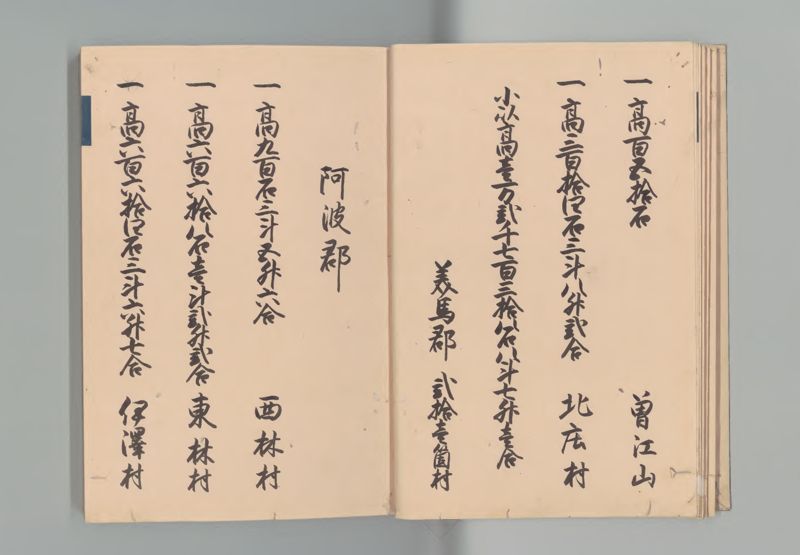 一高百五拾石 曽江山
一高三百拾四石三斗八升弐合 北庄村
小以高壱万弐千七百三拾八石八斗七升壱合
美馬郡 弐拾壱箇村
阿波郡
一高九百石三斗五升六合 西林村
一高六百六拾八石壱斗弐升弐合 東林村
一高六百六拾四石三斗六升七合 伊澤村